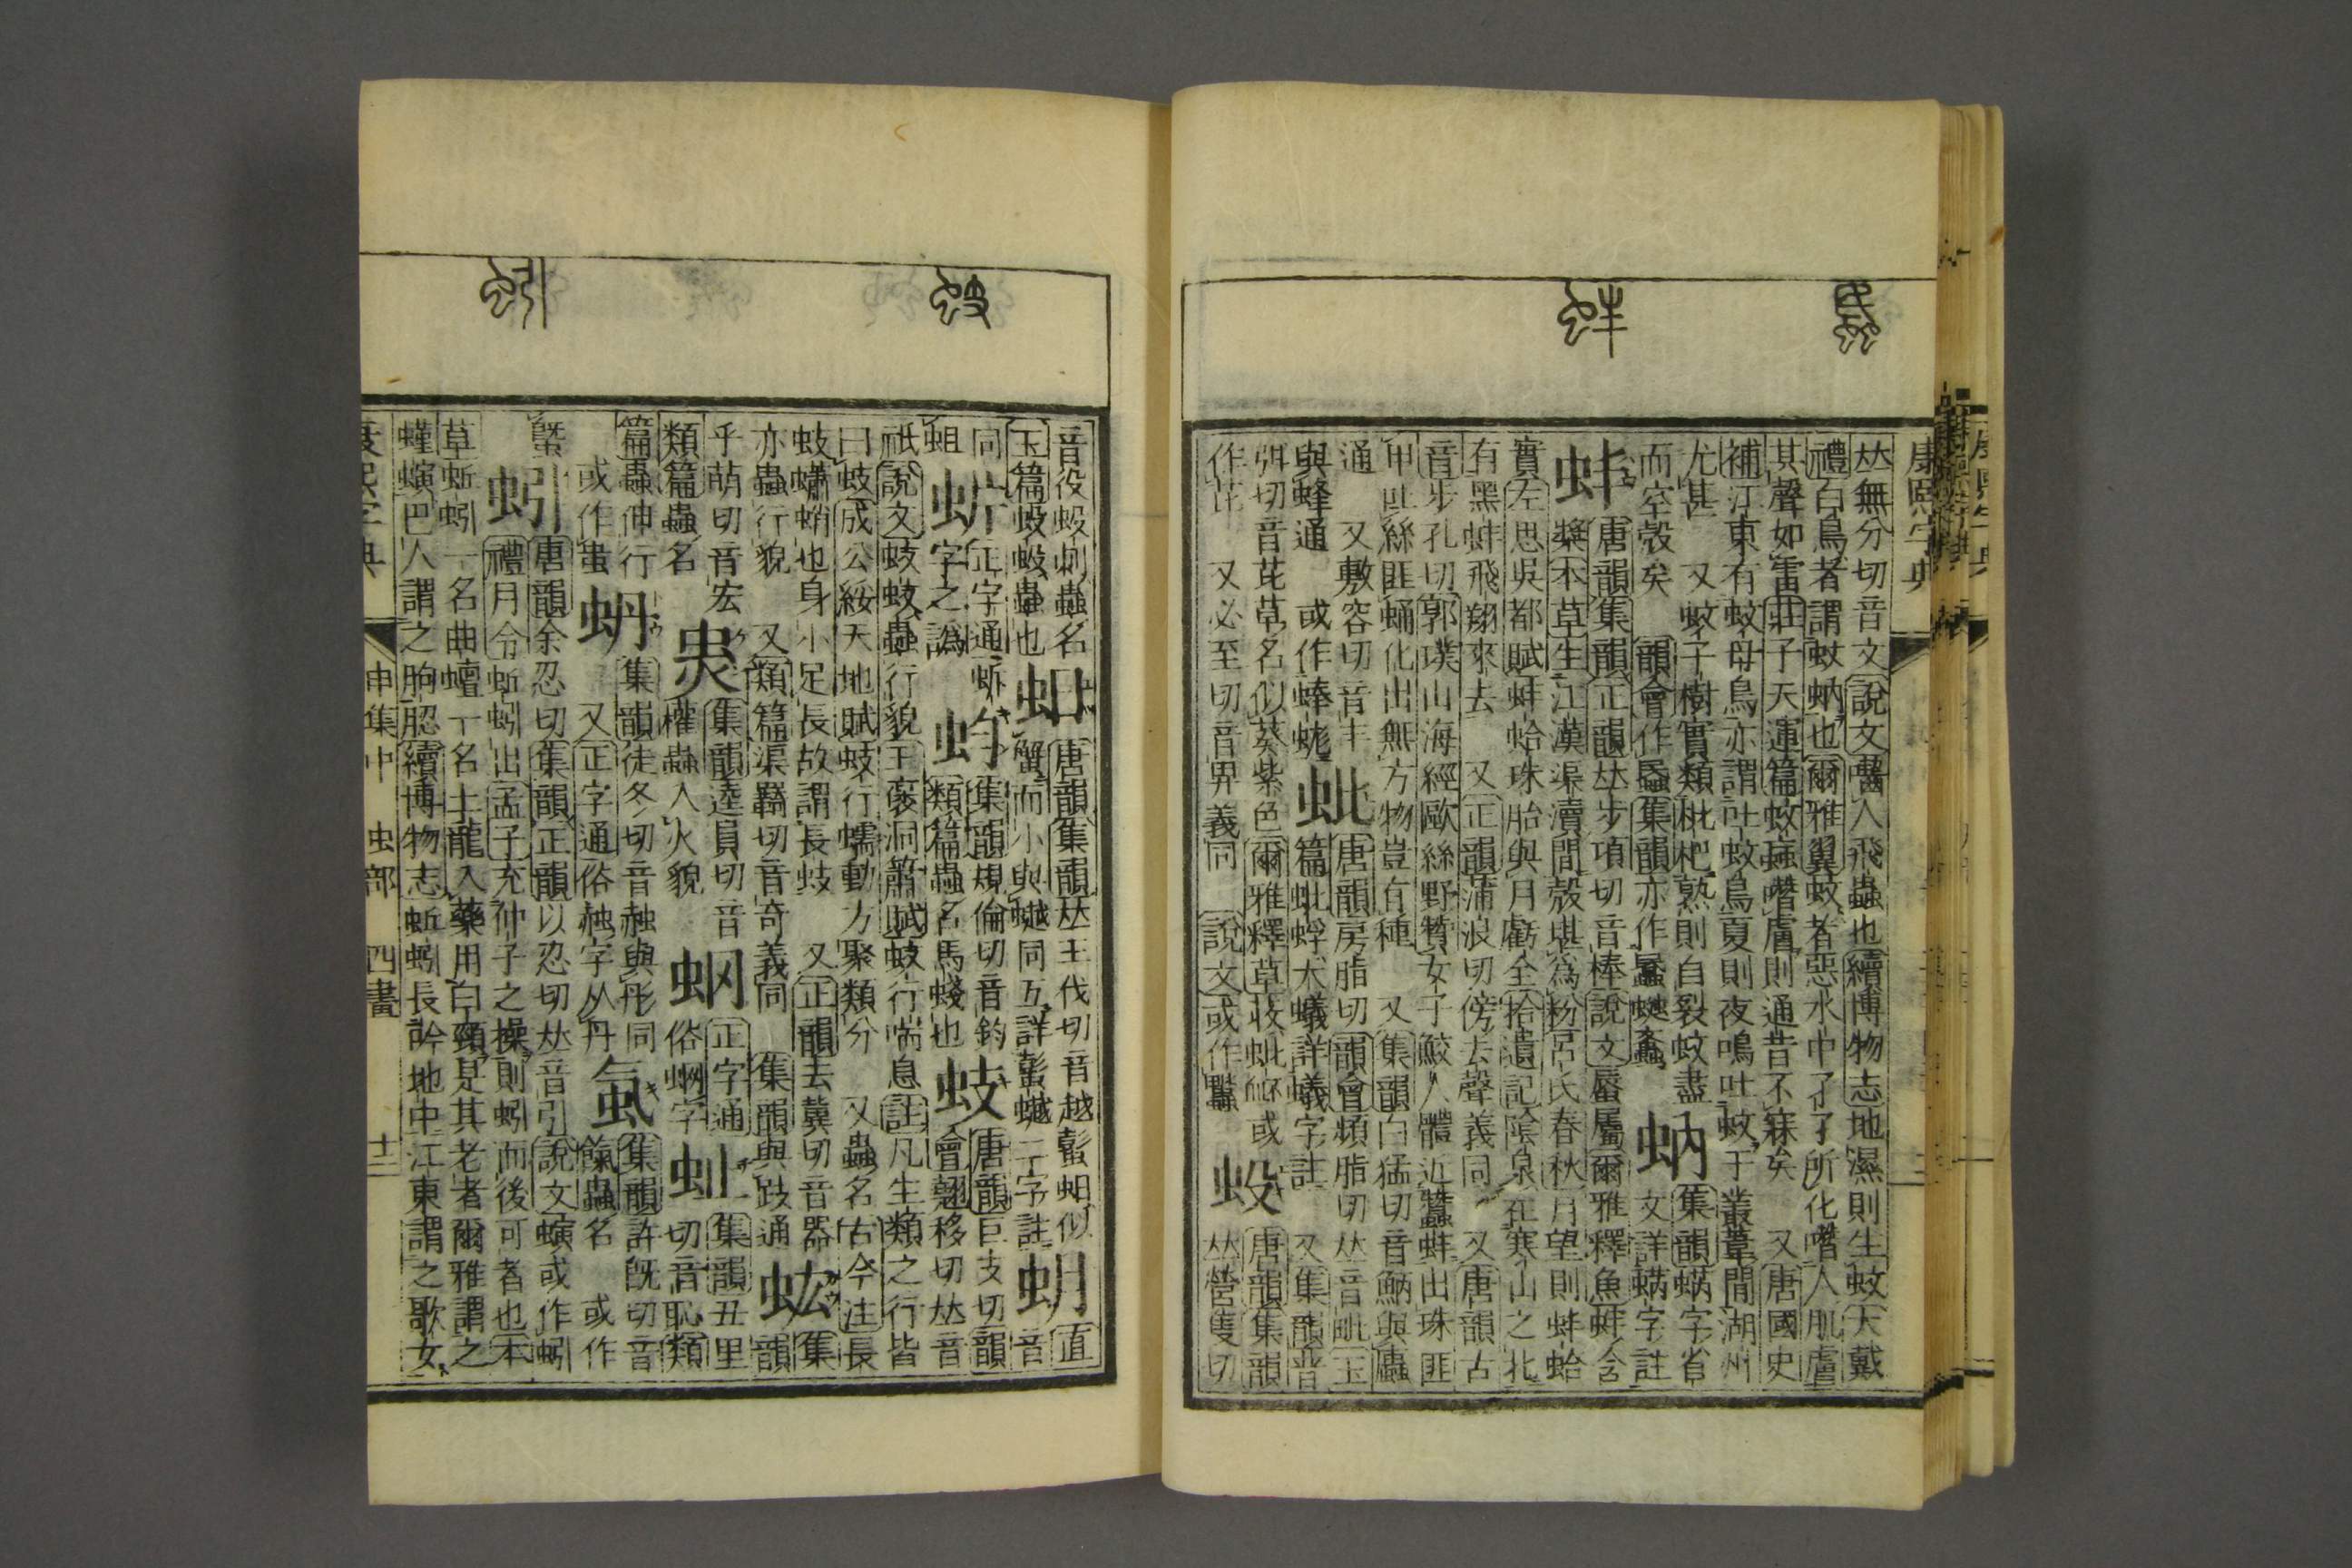 康熙字典
𠀤無分切音文說文齧人飛蟲也續博物志地濕則生蚊大戴
禮白鳥者謂蚊蚋也爾雅翼蚊者惡水中孑孒所化噆人肌膚
其聲如雷莊子天運篇蚊蝱噆膚則通昔不寐矣 又唐國史
補江東有蚊母鳥亦謂吐蚊鳥夏則夜鳴吐蚊于叢葦間湖州
尤甚 又蚊子樹實類枇杷熟則自裂蚊盡
而空殼矣 韻會作䘇集韻亦作蟁 蚋 集韻蜹字省
文詳蜹字註
蚌 唐韻集韻正韻𠀤步項切音棒說文蜃屬爾雅釋魚蚌含
漿本草生江漢渠瀆間殼堪爲粉呂氏春秋月望則蚌蛤
實左思吳都賦蚌蛤珠胎與月虧全拾遺記陰泉在寒山之北
有黑蚌飛翔來去 又正韻蒲浪切傍去聲義同 又唐韻古
音步孔切郭璞山海經歐絲野贊女子鮫人體近蠶蚌出珠匪
甲吐絲匪蛹化出無方物豈有種 又集韻白猛切音鮩與蠯
通 又敷容切音丰
與蜂通 或作蜯蜣 蚍 唐韻房脂切韻會頻脂切𠀤音毗玉
篇蚍蜉大蟻詳蟻字註 又集韻普
弭切音芘草名似葵紫色爾雅釋草荍蚍衃或
作芘 又必至切音畀義同 說文或作𧖈 蚥 唐韻集韻
𠀤營隻切
音役蚥刺蟲名
玉篇蚥蚥蟲也 蚎 唐韻集韻𠀤王伐切音越蟚蚎似
蟹而小與蟩同互詳蟚蟩二字註 蚏 直
音
同
蛆 蚚 正字通蚸
字之譌 蚐 集韻規倫切音鈞
類篇蟲名馬蚿也 蚑 唐韻巨支切韻
會翹移切𠀤音
祇說文蚑蚑蟲行貌王褒洞簫賦蚑行喘息註凡生類之行皆
曰蚑成公綏天地賦蚑行蠕動方聚類分 又蟲名古今注長
蚑蠨蛸也身小足長故謂長蚑 又正韻去冀切音器
亦蟲行貌 又類篇渠羈切音奇義同 集韻與跂通 䖟 集
韻
乎萌切音宏
類篇蟲名 蚠 集韻逵員切音
權蟲入火貌 蚒 正字通
俗蜽字 䖢 集韻丑里
切音恥類
篇蟲伸行
或作蚩 蚦 集韻徒冬切音赨與彤同
又正字通俗赨字从丹 䖘 集韻許旣切音
餼蟲名 或作
䗽 蚓 唐韻余忍切集韻正韻以忍切𠀤音引說文螾或作蚓
禮月令蚯蚓出孟子充仲子之操則蚓而後可者也本
草蚯蚓一名曲蟺一名土龍入藥用白頸是其老者爾雅謂之
螼螾巴人謂之朐䏰續博物志蚯蚓長吟地中江東謂之歌女
康熙字典 申集中 虫部 四畫 十二